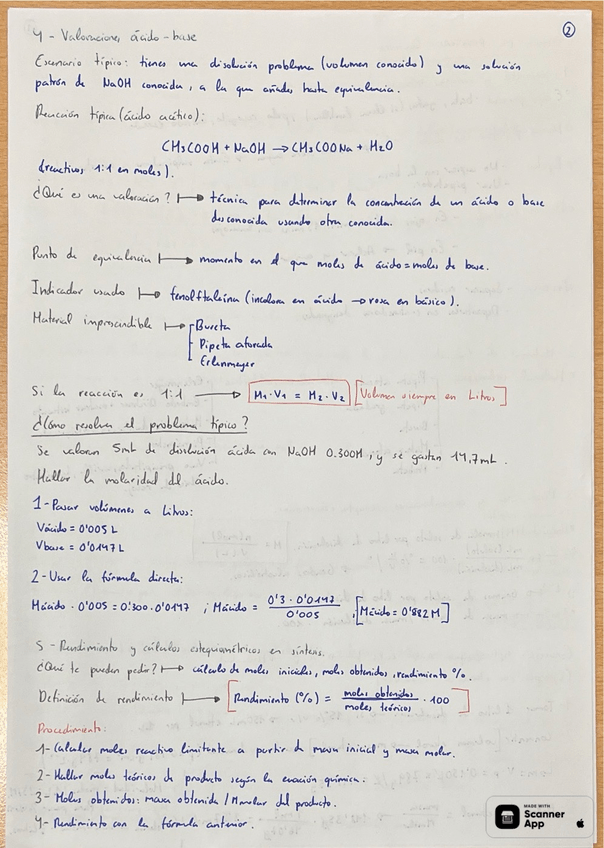 2
4 - Valoraciones ácido-base
Escenario típico: tienes una disolución problema (volumen conocido) y una solución
patrón de NaOH conocida, a la que añades hasta equivalencia.
Reacción típica (ácido acético):
CH3COOH + NaOH → CH3COONa + H2O
(reactivos 1:1 en moles).
¿Qué es una valoración? ↦ técnica para determinar la concentración de un ácido o base
desconocida usando otra conocida.
Punto de equivalencia ↦ momento en el que moles de ácido = moles de base.
Indicador usado ↦ fenolftaleína (incolora en ácido → rosa en básico).
Material imprescindible ↦ Bureta
Pipeta aforada
Erlenmeyer
Si la reacción es 1:1 → M1·V1 = M2·V2 [Volumen siempre en Litros]
¿Cómo resolver el problema típico?
Se valoran 5mL de disolución ácida con NaOH 0.300M ; y se gastan 14,7mL.
Hallar la molaridad del ácido.
1- Pasar volúmenes a Litros:
Vácido = 0'005 L
Vbase = 0'0147 L
2- Usar la fórmula directa:
Mácido · 0'005 = 0'300 · 0'0147 ; Mácido = 0'3 · 0'0147 / 0'005 ; [Mácido = 0'882 M]
5 - Rendimiento y cálculos estequiométricos en síntesis.
¿Qué te pueden pedir? ↦ cálculo de moles iniciales, moles obtenidos, rendimiento %.
Definición de rendimiento ↦ [Rendimiento (%) = moles obtenidos / moles teóricos · 100]
Procedimiento:
1- Calcular moles reactivo limitante a partir de masa inicial y masa molar.
2- Hallar moles teóricos de producto según la ecuación química.
3- Moles obtenidos: masa obtenida / Mmolar del producto.
4- Rendimiento con la fórmula anterior.
MADE WITH
Scanner
App